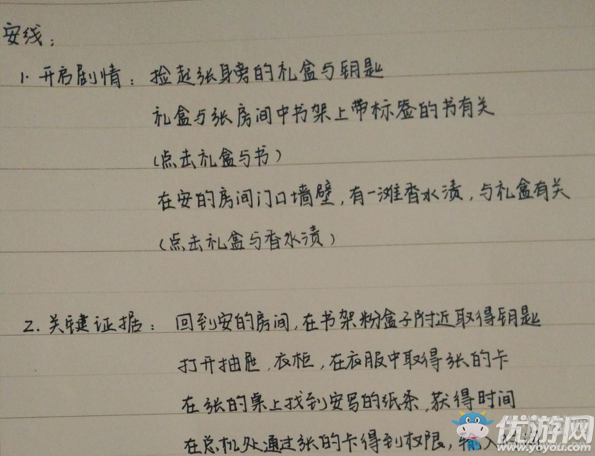 安线：
1. 开启剧情：捡起张身旁的礼盒与钥匙
礼盒与张房间中书架上带标签的书有关
(点击礼盒与书)
在安的房间门口墙壁，有一滩香水渍，与礼盒有关
(点击礼盒与香水渍)
2. 关键证据：回到安的房间，在书架粉盒子附近取得钥匙
打开抽屉，衣柜，在衣服中取得张的卡
在张的桌上找到安写的纸条，获得时间
在总机处通过张的卡得到权限，输入
优游网
www.yoyou.com